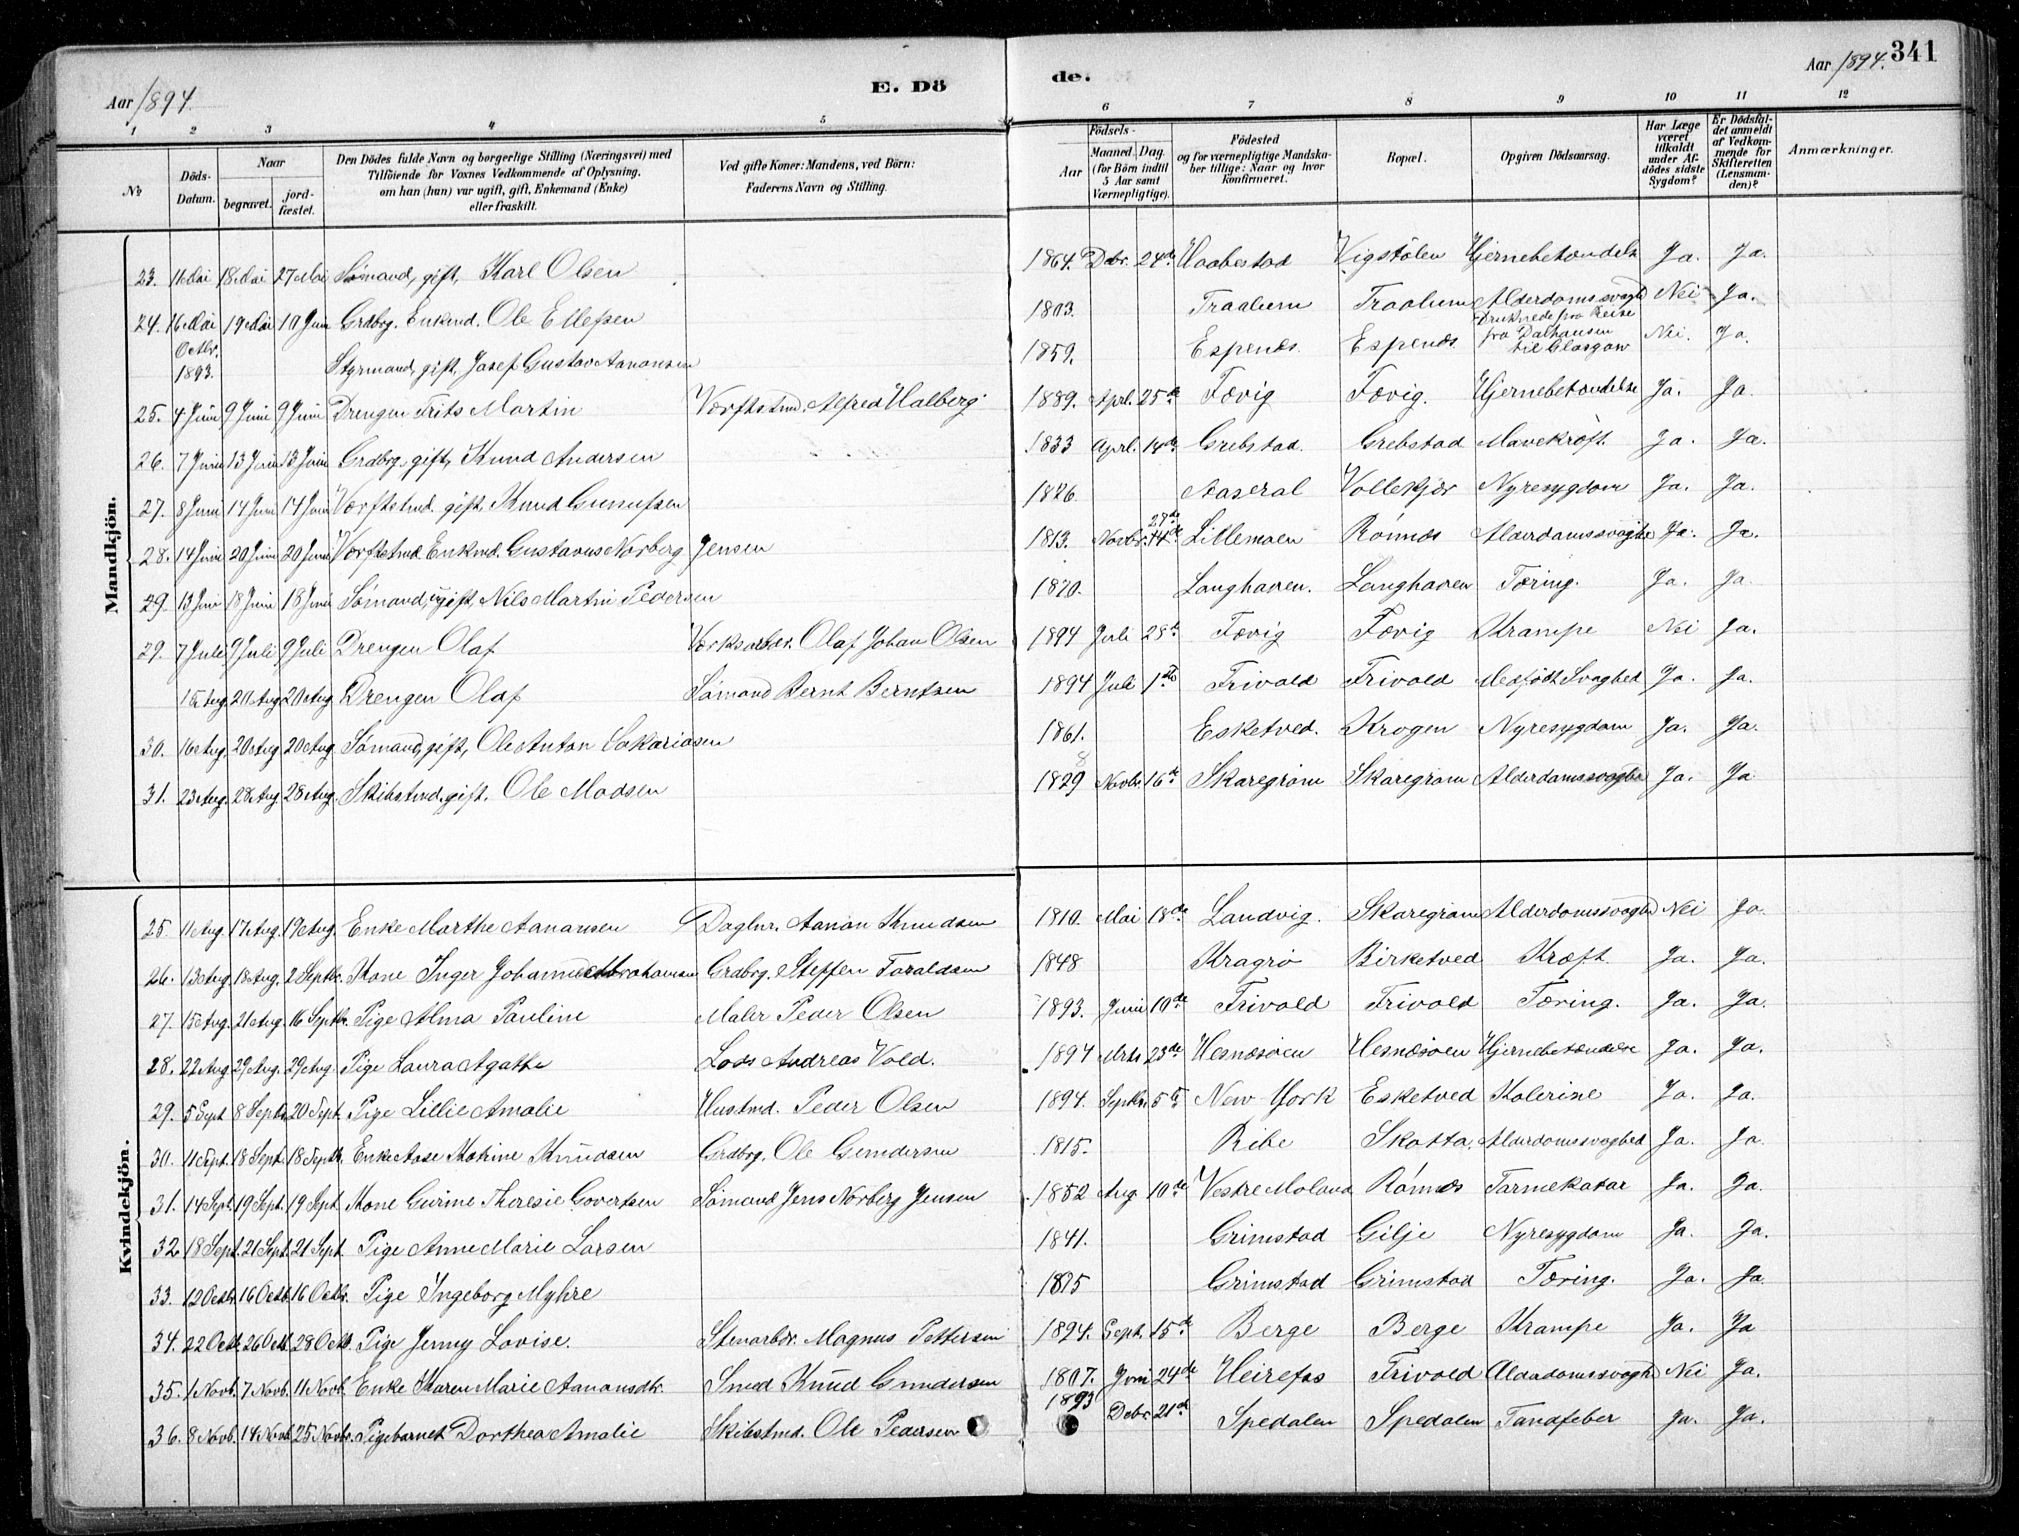 Aar 1894.
E. Dö
de.
Aar 1894. 341
1 2 3 4 5 6 7 8 9 10 11 12
No
Döds-Datum.
Naar
begravet.
jord-fæstet.
Den Dödes fulde Navn og borgerlige Stilling (Næringsvei) med
Tilföiende for Voxnes Vedkommende af Oplysning.
om han (hun) var ugift, gift, Enkemand (Enke)
eller fraskilt.
Ved gifte Koner: Mandens, ved Börn:
Faderens Navn og Stilling.
Födsels-
Aar
Maaned. Dag.
(for Börn indtil
5 Aar samt
Værnepligtige).
Födested
og for værnepligtige Mandska-
ber tillige: Naar og hvor
konfirmeret.
Bopæl.
Opgiven Dödsaarsag.
Har Læge
været
tilkaldt
under Af-
dödes sidste
Sygdom?
Er Dödsfal-
det anmeldt
af Vedkom-
mende for
Skifteretten
(Lensman-
den)?
Anmærkninger.
Mandkjön.
23. 11 Mai 18 Mai 27 Mai Sømand, gift, Karl Olsen 1864. Dcbr. 24de Haabestad Vigstølen Hjernebetændelse Ja. Ja.
24. 16 Mai 19 Mai 10 Juni Grdbrg. Enkmd. Ole Ellefsen 1803. Traalum Traalum Alderdomssvaghed Nei Ja.
Octbr. 1893. Styrmand, gift, Josef Gustav Aanonsen 1859. Espenes. Espenæs. Druknede fra Reise fra Dalhausen til Glasgow Nei. Ja.
25. 4 Juni 9 Juni 9 Juni Drengen Frits Martin Værftstmd. Alfred Halberg 1889. Aprl. 25de Fævig Fævig. Hjernebetændelse Ja. Ja.
26. 7 Juni 13 Juni 13 Juni Grdbrg. gift, Knud Andersen 1833 Aprl. 14de Grebstad. Grebstad Mavekræft. Ja. Ja.
27. 8 Juni 14 Juni 14 Juni Værftstmd. gift, Knud Gunufsen 1826. Aaseral Vollekjær Nyresygdom Ja. Ja.
28. 14 Juni 20 Juni 20 Juni Værftstmd. Enkmd. Gustavus Norberg Jensen 1813. Novbr. 14de Lillemoen Rønnæs Alderdomssvaghed Ja. Ja.
29. 13 Juni 18 Juni 18 Juni Sømand, ugift, Nils Martin Pedersen 1870. Langhaven. Langhaven Tæring. Ja. Ja.
29. 7 Juli 9 Juli 9 Juli Drengen Olaf Værksarbdr. Olaf Johan Olsen 1894 Juli 28de Fævig Fævig Krampe Nei Ja.
15 Aug. 20 Aug. 20 Aug. Drengen Olaf Sømand Bernt Berntsen 1894 Juli 1ste Frivold Frivold Medfødt Svaghed Ja. Ja.
30. 16 Aug. 20 Aug. 20 Aug. Sømand, gift, Ole Anton Sakariasen 1861. Esketved. Krogen Nyresygdom Ja. Ja.
31. 23 Aug. 28 Aug. 28 Aug. Skibstmd. gift. Ole Madsen 1829 Novbr. 16de Skaregrøm Skaregrøm Alderdomssvaghed Ja. Ja
Kvindekjön.
25. 11 Aug. 17 Aug. 19 Aug. Enke Marthe Aanonsen Daglnr. Aanon Knudsen 1810. Mai 18de Landvig. Skaregrøm Alderdomssvaghed Nei Ja.
26. 13 Aug. 18 Aug. 2 Septbr. Kone Inger Johanne Abrahamsen Grdbrg. Steffen Taraldsen 1848 Kragrø Birketved Kræft. Ja. Ja.
27. 15 Aug. 21 Aug. 16 Septbr. Pige Alma Pauline Maler Peder Olsen 1893. Juni 10de Frivold Frivold Tæring. Ja. Ja.
28. 22 Aug. 29 Aug. 29 Aug. Pige Laura Agathe Lods Andreas Vold. 1894 Mrts 23de Hesnæsøen Hesnæsøen Hjernebetændelse Ja. Ja.
29. 5 Sept. 8 Septbr. 20 Sept. Pige Lillie Amalie Hustmd. Peder Olsen 1894. Septbr. 5te New York Esketved Kolerine Ja. Ja.
30. 11 Sept. 18 Sept. 18 Septbr. Enke Aase Katrine Knudsen Grdbrg. Ole Gundersen 1815. Ribe Skatta. Alderdomssvaghed Ja. Ja.
31. 14 Sept. 19 Sept. 19 Sept. Kone Gurine Theresie Govertsen Sømand Jens Norberg Jensen 1852 Aug 10de Vestre Moland Rønnæs Tarmekatar Ja. Ja.
32. 18 Sept. 21 Sept. 21 Sept. Pige Anne Marie Larsen 1841. Grimstad Gilje Nyresygdom Ja. Ja.
33. 12 Octbr. 16 Octbr. 16 Octbr. Pige Ingeborg Myhre 1875 Grimstad Grimstad Tæring. Ja. Ja
34. 22 Octb. 26 Octb. 28 Octb. Pige Jenny Lovise. Stenarbdr. Magnus Pettersen 1894. Sept. 15de Berge Berge Krampe Ja. Ja
35. 1 Novb. 7 Novb. 11 Novb. Enke Karen Marie Aanonsdtr. Smed Knud Gundersen 1807. Juni 24de Heirefos Frivold Alderdomssvaghed Nei Ja.
36. 8 Novb. 14 Novb. 25 Novbr. Pigebarnet Dorthea Amalie Skibstmd. Ole Pedersen 1893 Dcbr. 21de Spedalen Spedalen Tandfeber Ja. Ja.